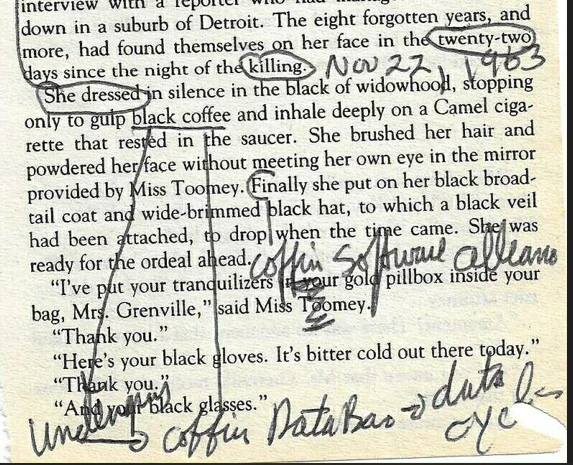 interview with a reporter who had
down in a suburb of Detroit. The eight forgotten years, and
more, had found themselves on her face in the twenty-two
days since the night of the killing. Nov 22, 1963
She dressed in silence in the black of widowhood, stopping
only to gulp black coffee and inhale deeply on a Camel ciga-
rette that rested in the saucer. She brushed her hair and
powdered her face without meeting her own eye in the mirror
provided by Miss Toomey. Finally she put on her black broad-
tail coat and wide-brimmed black hat, to which a black veil
had been attached, to drop when the time came. She was
ready for the ordeal ahead. coffin software
"I've put your tranquilizers in your gold pillbox inside your
bag, Mrs. Grenville," said Miss Toomey.
"Thank you."
"Here's your black gloves. It's bitter cold out there today."
"Thank you."
"And your black glasses."
coffin DataBas data